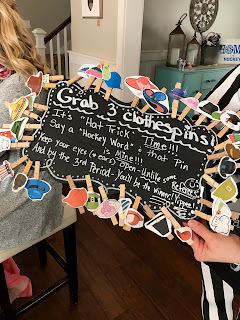 Grab a clothespin!
It's "Hat Trick" Time!!!
Say a "Hockey Word" & that Pin
is Mine!!!
Keep your eyes (& ears) Open - Unlike some Referees!
And by the 3rd Period - You'll be the Winner! Yippee!
HOCKEY